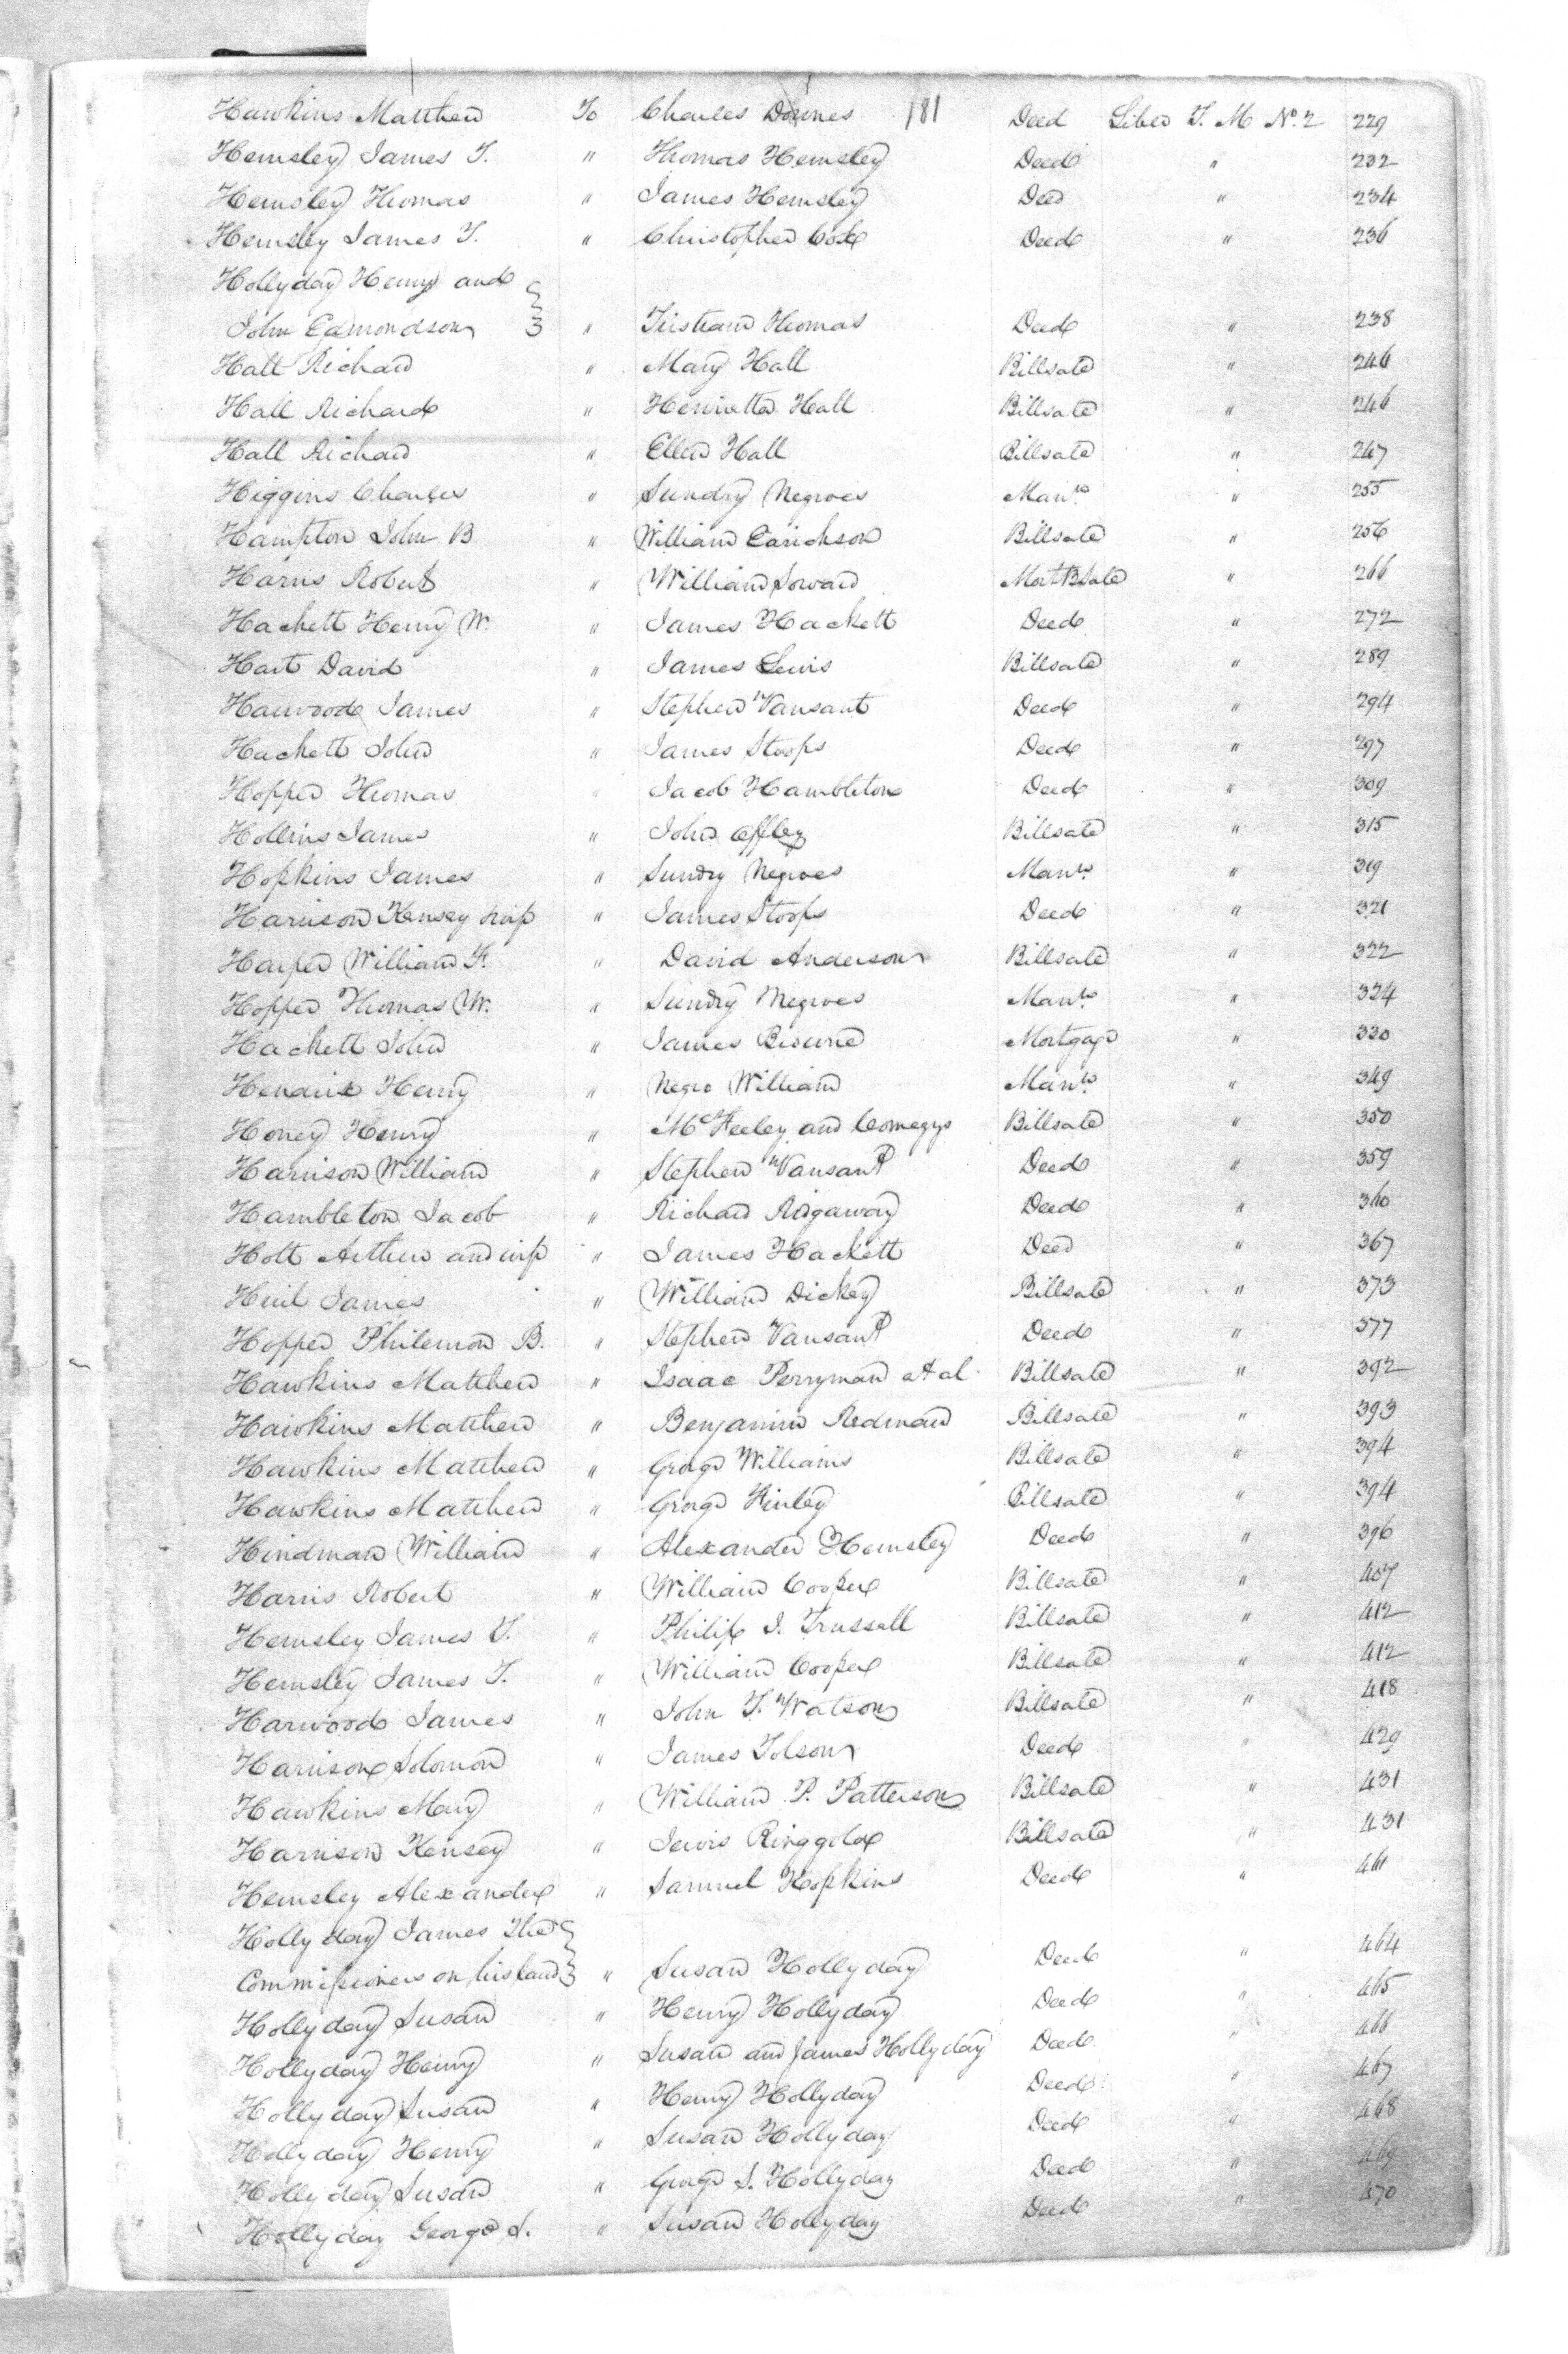 181
Hawkins Matthew To Charles Downes Deed Liber T. M No. 2 229
Hemsley James T. " Thomas Hemsley Deed " 232
Hemsley Thomas " James Hemsley Deed " 234
Hemsley James T. " Christopher Cox Deed " 236
Hollyday Henry and
John Edmondson " Tristram Thomas Deed " 238
Hall Richard " Mary Hall Billsale " 246
Hall Richard " Henrietta Hall Billsale " 246
Hall Richard " Ellen Hall Billsale " 247
Higgins Charles " Sundry Negroes Mann. " 255
Hampton John B " William Earickson Billsale " 256
Harris Robert " William Soward Mort BSale " 266
Hackett Henry W. " James Hackett Deed " 272
Hart David " James Lewis Billsale " 289
Harwood James " Stephen Vansant Deed " 294
Hackett John " James Stoops Deed " 297
Hopper Thomas " Jacob Hambleton Deed " 309
Hollins James " John Offley Billsale " 315
Hopkins James " Sundry Negroes Mann. " 319
Harrison Kensey " James Stoops Deed " 321
Harper William F. " David Anderson Billsale " 322
Hopper Thomas W. " Sundry Negroes Mann. " 324
Hackett John " James Mortgage " 330
Hendrix Henry " Negro William Mann. " 349
Honey Henry " McFeeley and Comegys Billsale " 350
Harrison William " Stephen Vansant Deed " 359
Hambleton Jacob " Richard Ridgaway Deed " 360
Holt Arthur and wife " James Hackett Deed " 367
James " William Dickey Billsale " 373
Hopper Philemon B. " Stephen Vansant Deed " 377
Hawkins Matthew " Isaac Perryman et al Billsale " 392
Hawkins Matthew " Benjamin Redman Billsale " 393
Hawkins Matthew " George Williams Billsale " 394
Hawkins Matthew " George Finley Billsale " 394
Hindman William " Alexander Hemsley Deed " 396
Harris Robert " William Cooper Billsale " 407
Hemsley James T. " Philip I. Trussell Billsale " 412
Hemsley James T. " William Cooper Billsale " 412
Harwood James " John T. Watson Billsale " 418
Harrison Solomon " James Tolson Deed " 429
Hawkins Mary " William P. Patterson Billsale " 431
Harrison Kensey " Lewis Ringgold Billsale " 431
Hemsley Alexander " Samuel Hopkins Deed " 461
Hollyday James The
Commissioners on his land " Susan Hollyday Deed " 464
Hollyday Susan " Henry Hollyday Deed " 465
Hollyday Henry " Susan and James Hollyday Deed " 466
Hollyday Susan " Henry Hollyday Deed " 467
Hollyday Henry " Susan Hollyday Deed " 468
Hollyday Susan " George S. Hollyday Deed " 469
Hollyday George S. " Susan Hollyday Deed " 470